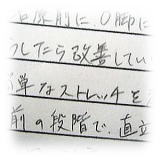 前に、O脚に
したら改善してい
単なストレッチを
前の段階で、直立